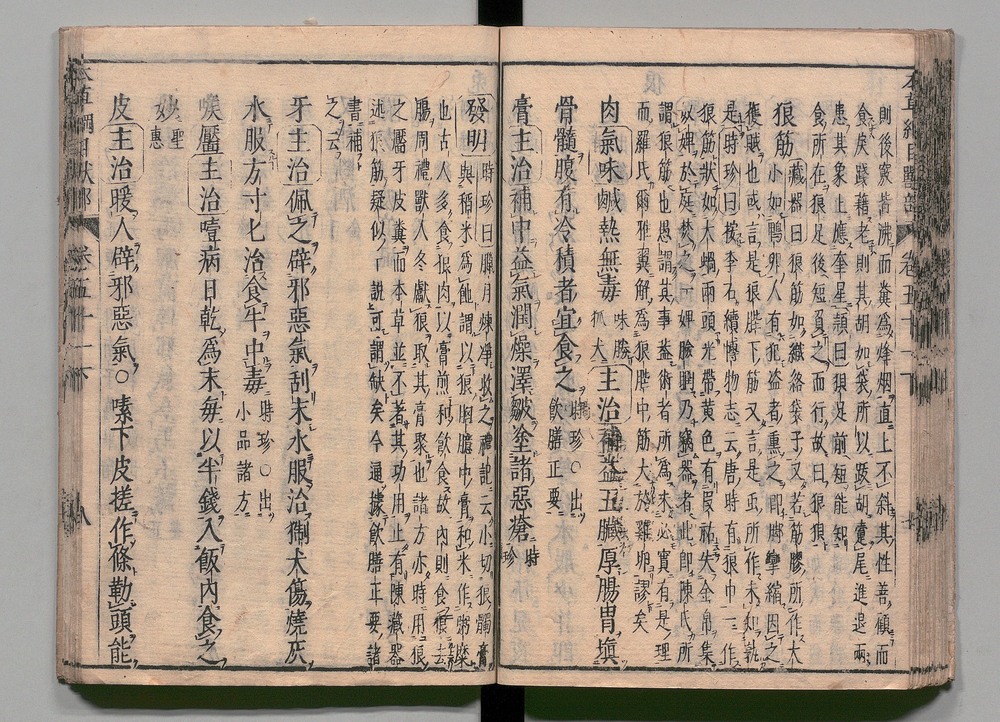 則後竅皆沸而糞為烽烟直上不斜其性善顧而
食戾踐藉老則其胡如袋所以跋胡疐尾進退兩
患其象上應奎星頴曰狽足前短能知
食所在狼足後短負之而行故曰狼狽
狼筋藏器曰狼筋如織絡袋子又若筋膠所作大
小如鴨卵人有犯盗者熏之即脚攣縮因之
獲賊也或言是狼䏶下筋又言是虫所作未知孰
是時珍曰按李石續博物志云唐時有狼巾一作
狼筋狀如大蝸兩頭光帶黄色有叚祐失金帛集
奴婢於庭焚之一婢臉瞤乃竊器者此即陳氏所
謂狼筋也愚謂其事盖術者所為未必實有是理
而羅氏爾雅翼解為狼䏶中筋大於雞卵謬矣
肉氣味鹹熱無毒味勝狐犬主治補益五臟厚腸胃塡
骨髓腹有冷積者宜食之時珍○出飲膳正要
膏主治補中益氣潤燥澤皺塗諸惡瘡時珍
發明時珍曰臘月煉净收之禮記云小切狼臅膏
與稻米為酏謂以狼胸臆中膏和米作粥糜
也古人多食狼肉以膏煎和飲食故内則食狼去
腸周禮獸人冬獻狼取其膏聚也諸方亦時用狼
之靨牙皮糞而本草並不著其功用止有陳藏器
述狼筋疑似一說可謂缺矣今通據飲膳正要諸
書補之云
牙主治佩之辟邪惡氣刮末水服治猘犬傷燒灰
水服方寸匕治食牛中毒時珍○出小品諸方
喉靨主治噎病日乾為末每以半錢入飯内食之
妙聖惠
皮主治暖人辟邪惡氣○嗉下皮搓作條勒頭能